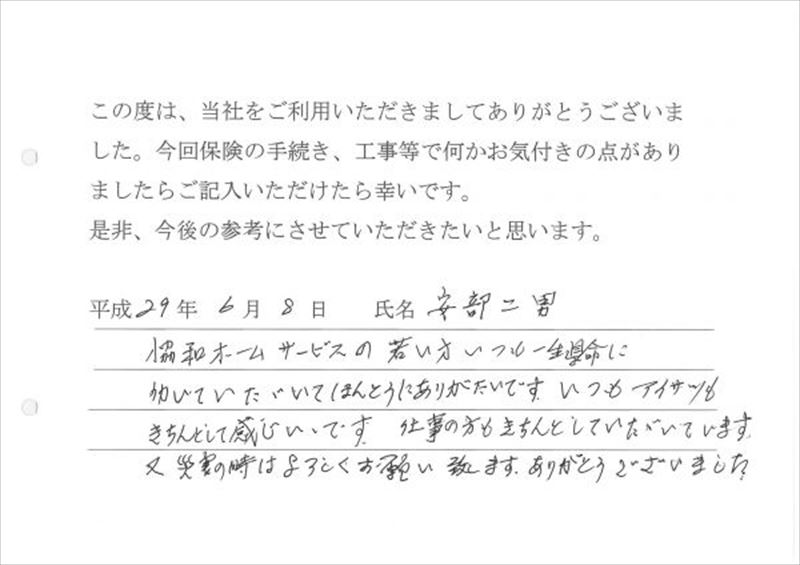 この度は、当社をご利用いただきましてありがとうございま
した。今回保険の手続き、工事等で何かお気付きの点があり
ましたらご記入いただけたら幸いです。
是非、今後の参考にさせていただきたいと思います。
平成29年 6月 8日 氏名 安部二男
協和ホームサービスの若い方いつも一生懸命に
働いていただいてほんとうにありがたいです。いつもアイサツも
きちんとして感じいいです。仕事の方もきちんとしていただいています。
又災害の時はよろしくお願い致します。ありがとうございました